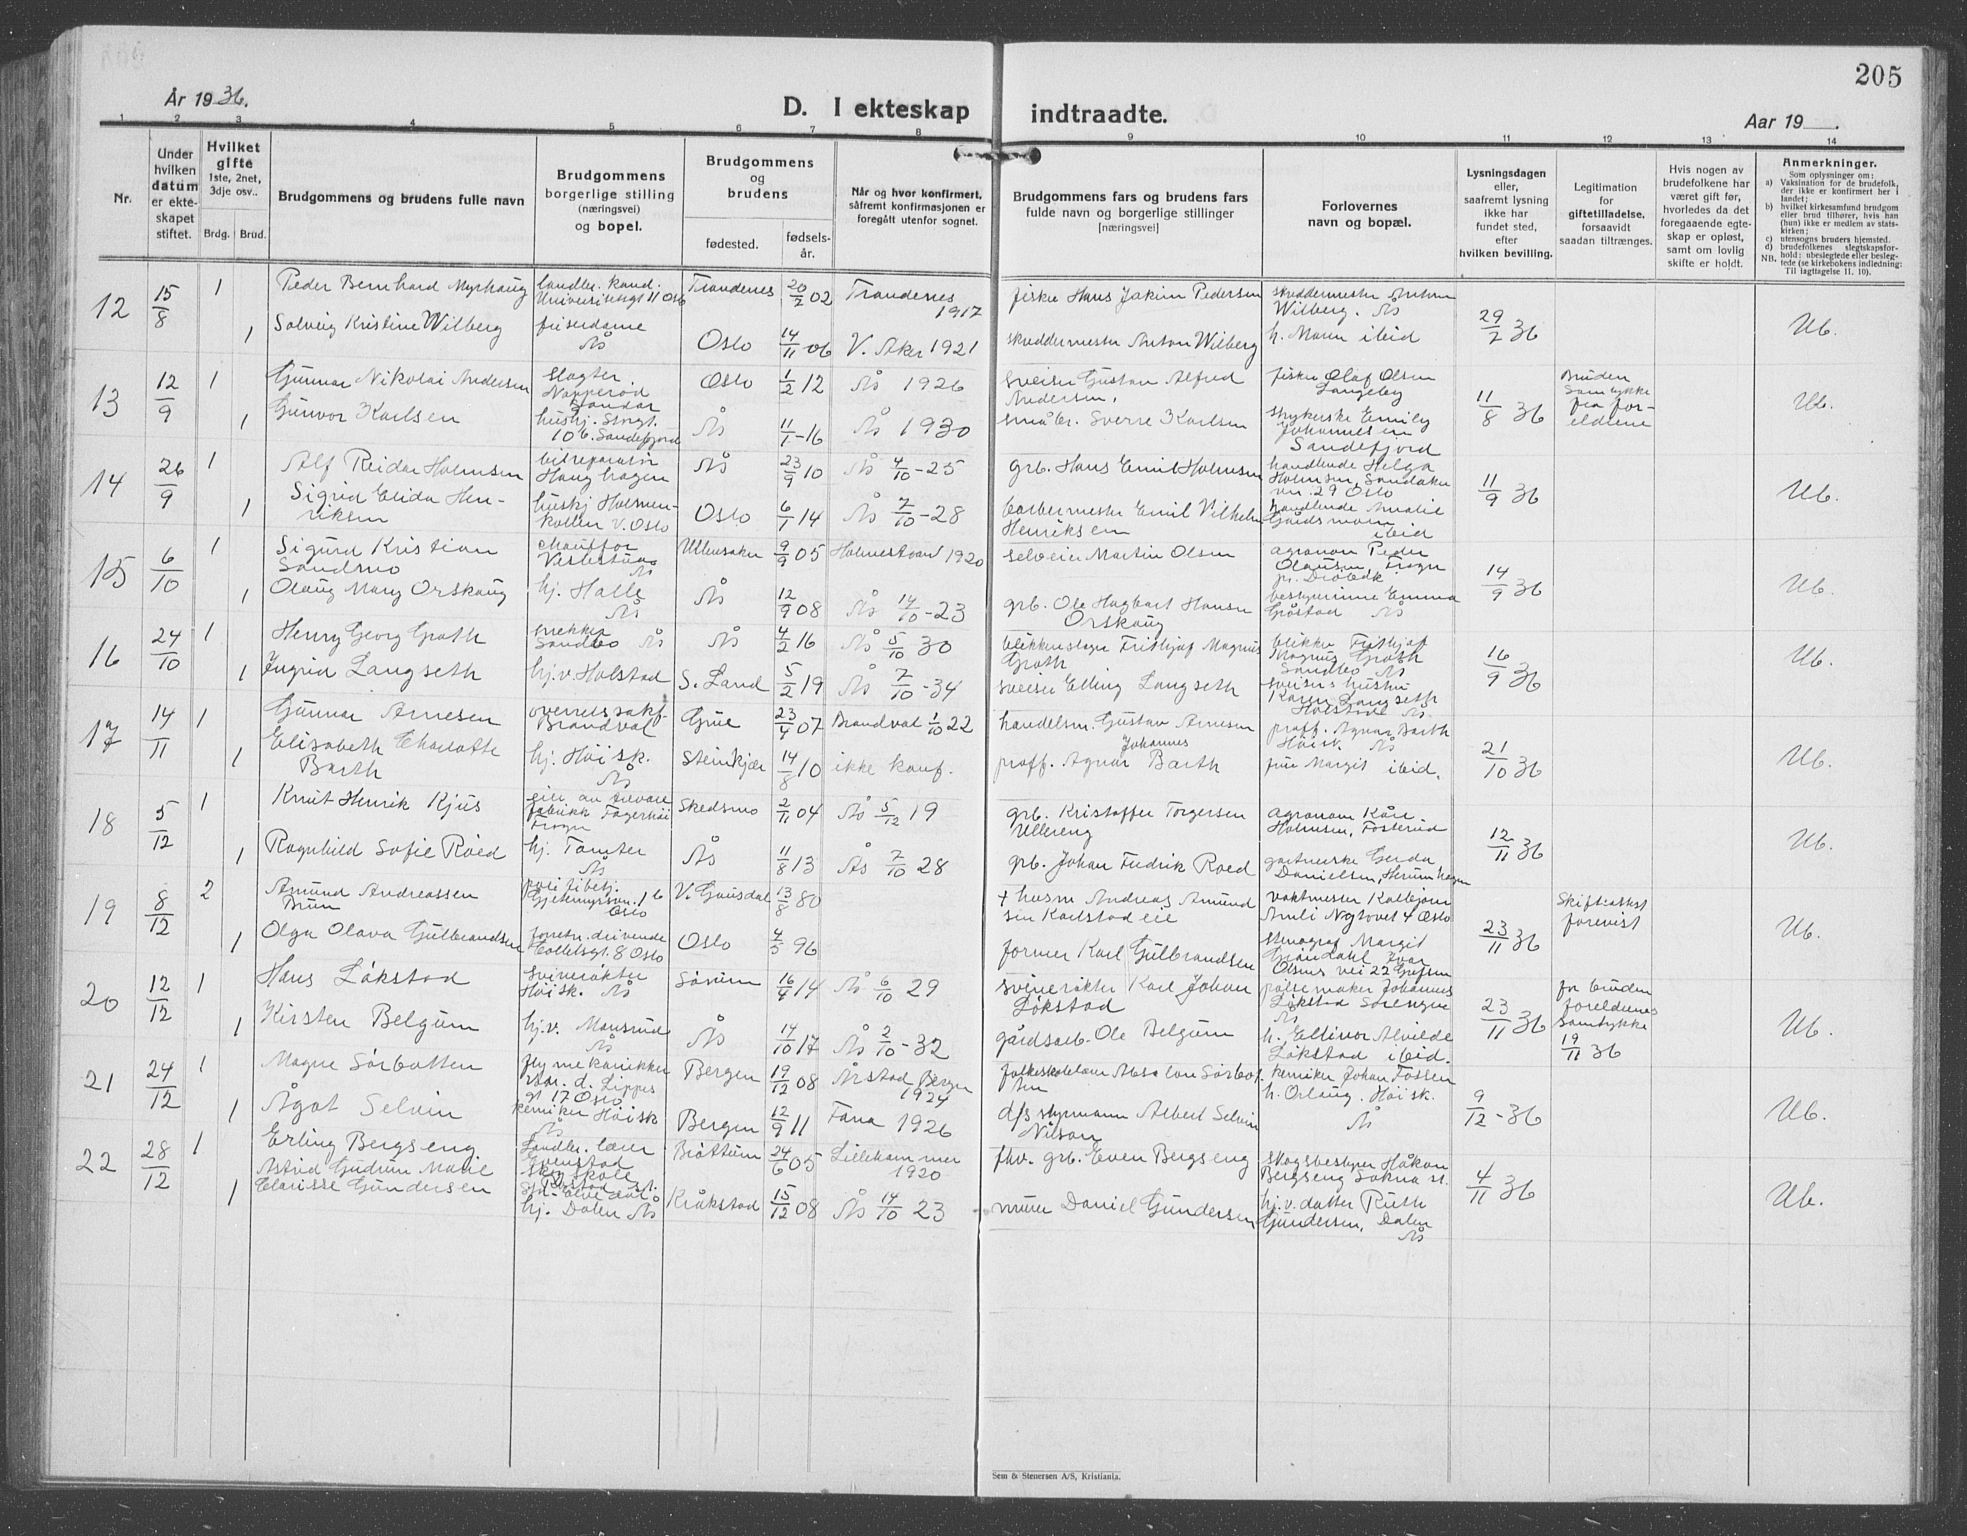 205
År 1936.
D. I ekteskap indtraadte.
Aar 19
1 2 3 4 5 6 7 8 9 10 11 12 13 14
Nr.
Under hvilken datum er ekteskapet stiftet.
Hvilket gifte 1ste, 2net, 3dje osv..
Brdg. Brud.
Brudgommens og brudens fulle navn
Brudgommens borgerlige stilling (næringsvei) og bopel.
Brudgommens og brudens
fødested. fødselsår.
Når og hvor konfirmert, såfremt konfirmasjonen er foregått utenfor sognet.
Brudgommens fars og brudens fars fulde navn og borgerlige stillinger [næringsvei]
Forlovernes navn og bopæl.
Lysningsdagen eller, saafremt lysning ikke har fundet sted, efter hvilken bevilling.
Legitimation for giftetilladelse, forsaavidt saadan tiltrænges.
Hvis nogen av brudefolkene har været gift før, hvorledes da det foregaaende egteskap er opløst, samt om lovlig skifte er holdt.
Anmerkninger.
Som oplysninger om:
a) Vaksination for de brudefolk, der ikke er konfirmert her i landet;
b) hvilket kirkesamfund brudgom eller brud tilhører, hvis han (hun) ikke er medlem av statskirken;
c) utensogns bruders hjemsted.
d) brudefolkenes slegtskapsforhold: ubeslegtede eller beslegtede (se kirkebokens indledning: Til iagttagelse II. 10).
NB.
12 15/8 1 Peder Bernhard Myrhaug landbr. kand. Universitetsgt 11 Oslo Trondenes 20/7 02 Trondenes 1917 fisker Hans Jakim Pedersen skreddermester Anton Wilberg. Ås
1 Solveig Kristine Wilberg friserdame Ås Oslo 14/11 06 V. Aker 1921 skreddermester Anton Wilberg h. Maren ibid 29/7 36 Ub.
13 12/9 1 Gunnar Nikolai Andersen slagter. Nopperød Sandar Oslo 1/2 12 Ås 1926 sveiser Gustav Alfred Andersen, fisker Olaf Olsen Langeby
1 Gunvor Karlsen hushj. Storgt. 10 b. Sandefjord Ås 11/1-16 Ås 1930 småbr. Sverre Karlsen strykerske Emily Johannesen Sandefjord 11/8 36 Bruden Samtykke fra foreldrene Ub.
14 26/9 1 Alf Reidar Holmsen bilreparatør Haughagen Ås 23/9 10 Ås 4/10-25 grb. Hans Emil Holmsen handlende Helga Holmsen, Sandakerven. 29 Oslo
1 Sigrid Elida Henriksen hushj Holmenkollen V. Oslo Oslo 6/1 14 Ås 7/10-28 barbermester Emil Vilhelm Henriksen handlende Amalie Guldsmoen ibid 11/9 36 Ub.
15 6/10 1 Sigurd Kristian Sandmo chauffør Vestestua Ås Ullensaker 9/9 05 Holmestrand 1920 selveier Martin Olsen agronom Peder Olausen, Frogn pr. Drøbak
1 Olaug Mary Orskaug hj. Holle Ås Ås 12/9 08 Ås 14/10-23 grb. Ole Hagbart Hansen Orskaug bestyrerinne Emma Gråstad Ås 14/9 36 Ub.
16 24/10 1 Henry Georg Groth snekker Sandbo Ås Ås 4/2 16 Ås 5/10 30 blikkenslager Fridtjof Magnus Groth blikkensl. Fridtjof Magnus Groth Sandbo Ås
1 Ingrid Langseth hj. v. Holstad S. Land 5/2 19 Ås 7/10-34 sveiser Elling Langseth sveisers hustru Karen Langseth Holstad Ås. 16/9 36 Ub.
17 14/11 1 Gunnar Arnesen overretssakf. Brandval Grue 23/4 07 Brandval 1/10 22 handelsm. Gustav Arnesen proff. Agnar Barth Høisk. Ås
1 Elisabeth Charlotte Barth hj. Høisk. Ås Steinkjær 14/8 10 ikke konf. proff. Agnar Johannes Barth frue Margit ibid. 21/10 36 Ub.
18 5/12 1 Knut Henrik Kjus eier av trevarefabrikk Fagerhøi Frogn Skedsmo 2/11 04 Ås 5/12 19 grb. Kristoffer Torgersen Ullereng agronom Kåre Holmsen, Fosterud
1 Ragnhild Sofie Røed hj. Tomter Ås Ås 11/8 13 Ås 7/10 28 grb. Johan Fredrik Roed gartnerske Gerda Danielsen, Herumhagen 12/11 36 Ub.
19 8/12 2 Amund Andreassen Brun politibetj. Gjetemyrsvn. 1 b Oslo V. Gausdal 13/8 80 + husm Andreas Amundsen Karlstad eie vaktmester Kolbjørn Amli Nytovet 4 Oslo Skifteattest forevist
1 Olga Olava Gulbrandsen forretn. drivende Colletsgt. 8 Oslo Oslo 4/5 96 former Karl Gulbrandsen stenograf Margit Grøndahl Ivar Olsens vei 22 Grefsen 23/11 36 Ub.
20 12/12 1 Hans Løkstad svinerøkter Høisk. Ås Sørum 16/4 14 Ås 6/10 29 svinerøkter Karl Johan Løkstad pølsemaker Johannes Løkstad Sorengne Ås for bruden foreldrenes samtykke 19/11 36
1 Kirsten Belgum hj. v. Monsrud Ås Ås 14/10 17 Ås 2/10-32 gårdsarb. Ole Belgum h. Ellinor Alvilde Løkstad ibid. 23/11 36 Ub.
21 24/12 1 Magne Sørbotten flymekanikker Mar. d. Lippes gt 17 Oslo Bergen 19/12 08 Årstad Bergen 1924 folkeskolelærer Absalon Sørbotten kemiker Johan Fossen
1 Ågot Selvin kemiker Høisk Ås Bergen 12/9 11 Fana 1926 d/s styrmann Albert Selvin Nilson h. Orlaug. Høisk. Ås 9/12-36 Ub.
22 28/12 1 Erling Bergseng landbr. lærer Evenstad skogskole Rasta st. Stor-Elvedal Brøttum 24/6 05 Lillehammer 1920 fhv. grb. Even Bergseng skogsbestyrer Håkon Bergseng Sokna st.
1 Astrid Gudrun Marie Clarisse Gundersen hj. Dalen Ås Kråkstad 15/12 08 Ås 14/10 23 murer Daniel Gundersen hj. v. datter Ruth Gundersen, Dalen Ås 4/11 36 Ub.
Sem & Stenersen A/S, Kristiania.